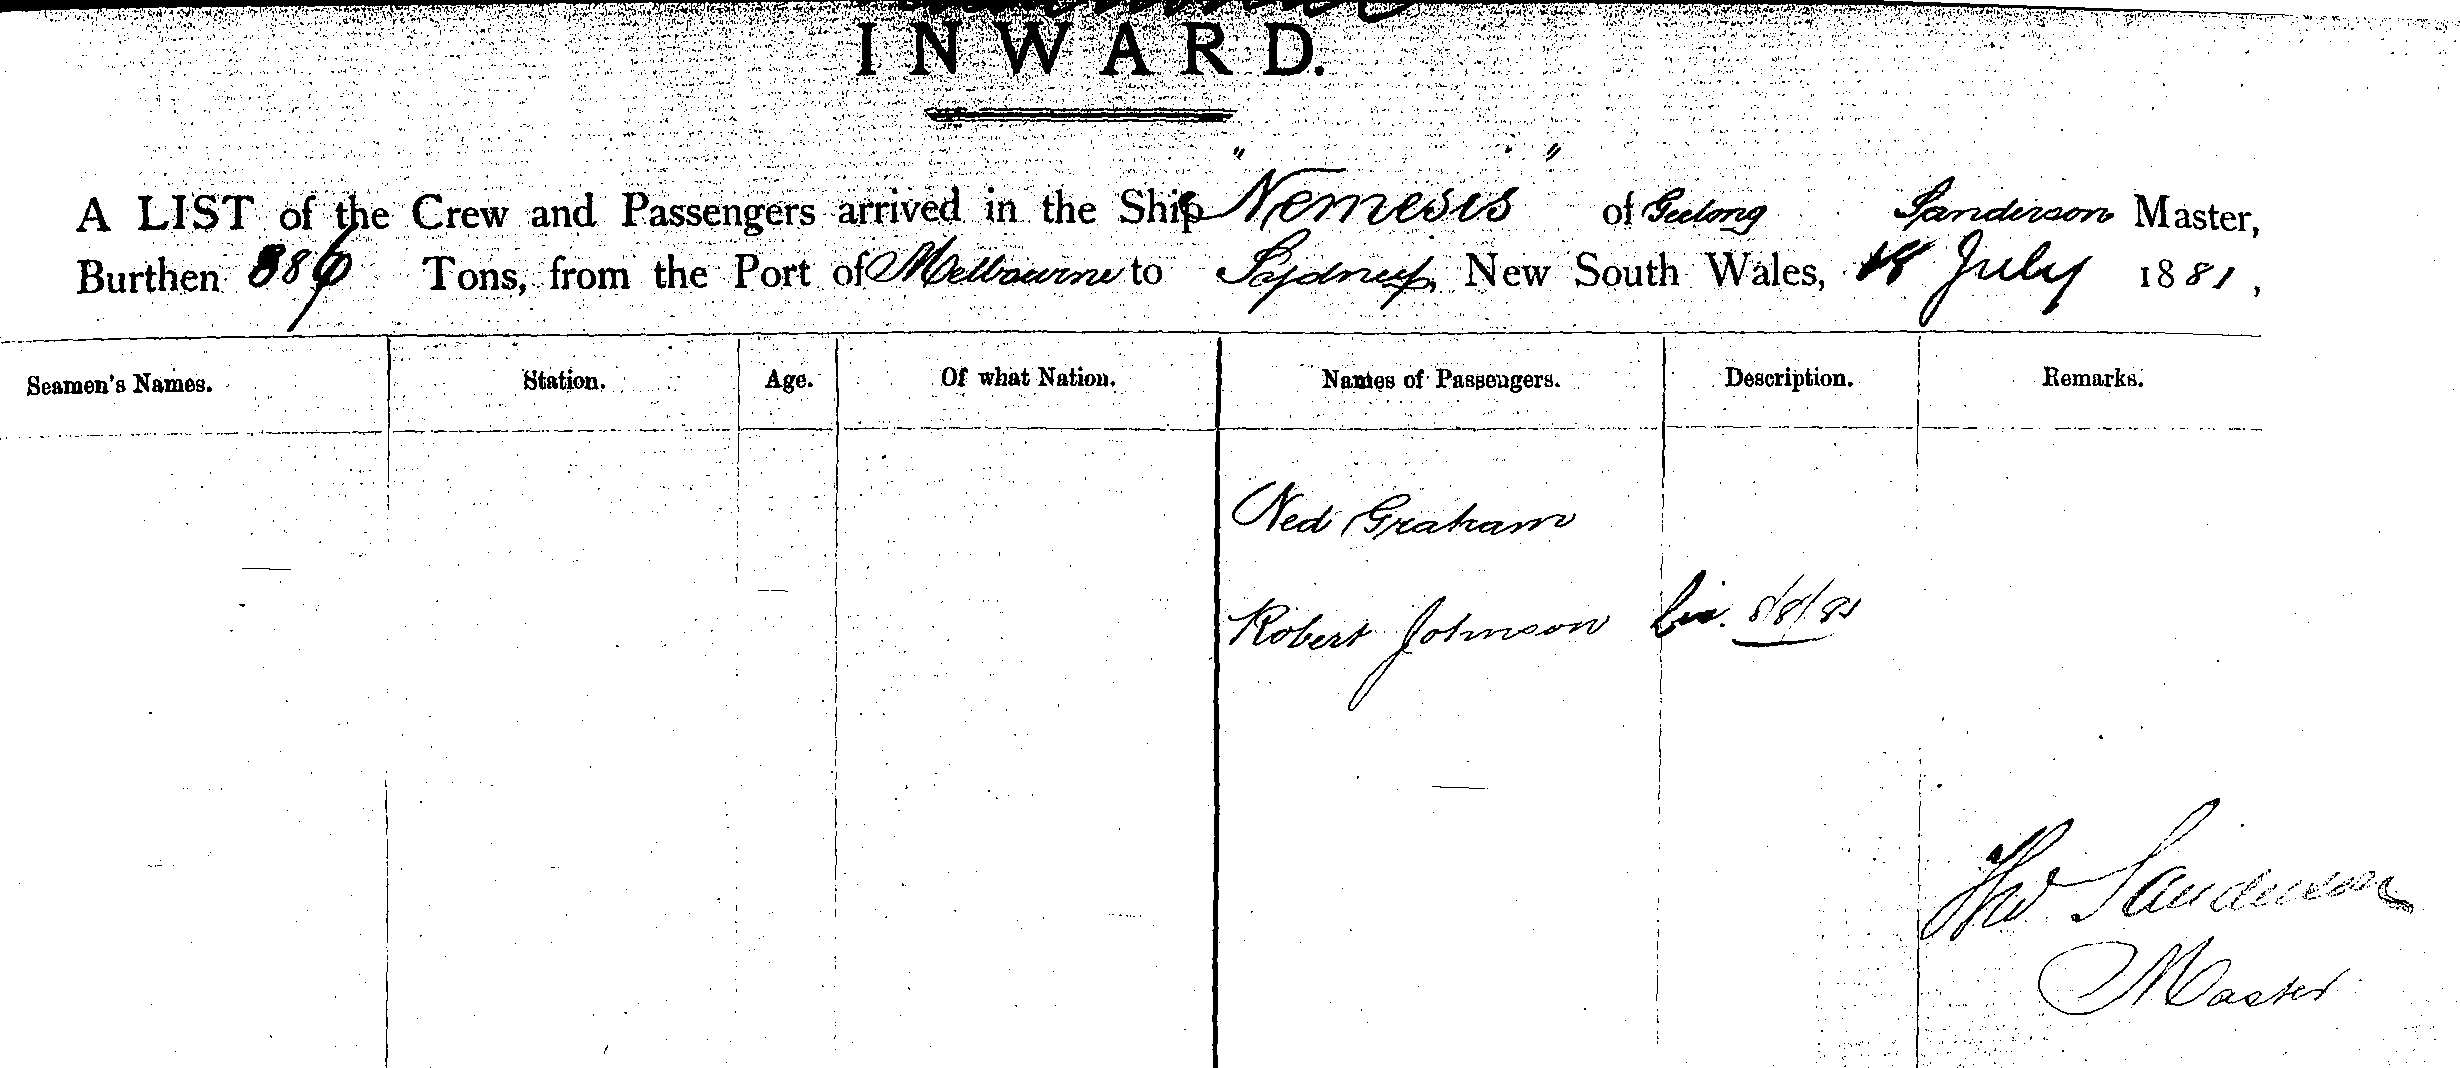 INWARD.
A LIST of the Crew and Passengers arrived in the Ship "Nemesis" of Geelong Sanderson Master,
Burthen 886 Tons, from the Port of Melbourne to Sydney, New South Wales, 18 July 1881,
Seamen's Names. Station. Age. Of what Nation. Names of Passengers. Description. Remarks.
Ned Graham
Robert Johnson 8/8/81
Sanderson
Master